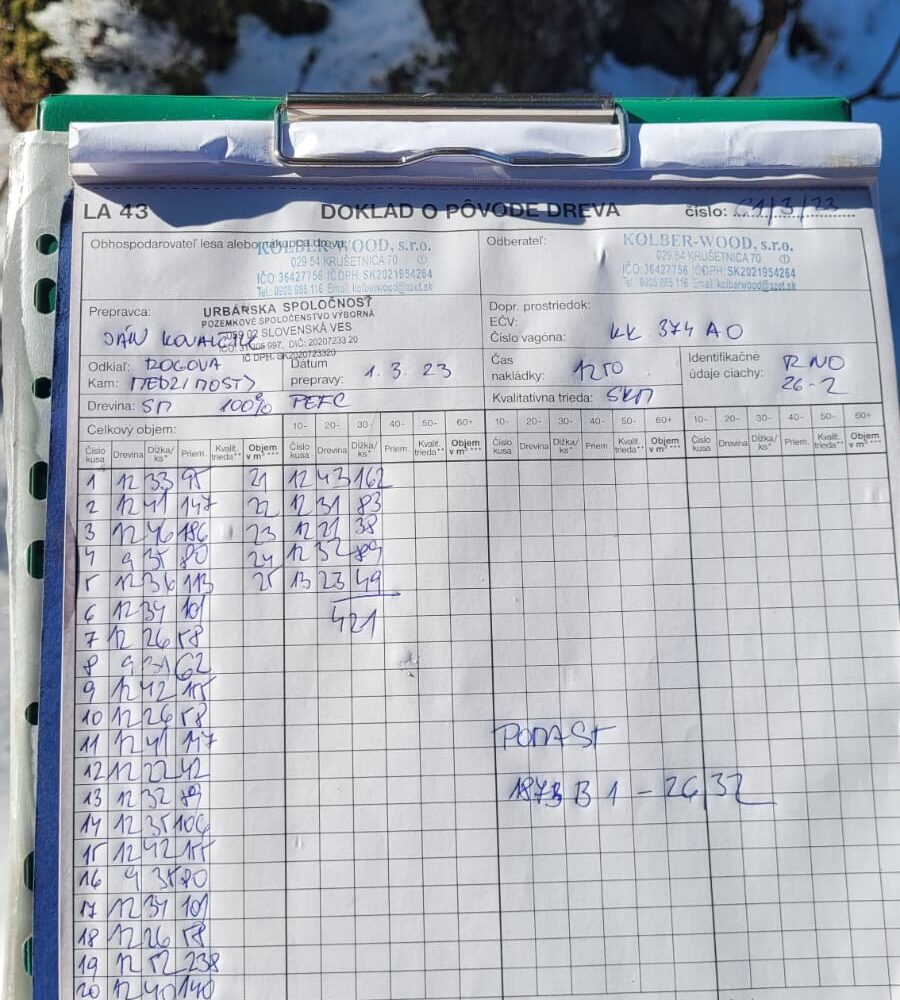 LA 43 DOKLAD O PÔVODE DREVA číslo: 1/3/23
Obhospodarovateľ lesa alebo nákupca dreva:
KOLBER-WOOD, s.r.o.
029 54 KRUŠETNICA 70
IČO: 36427756 IČ DPH: SK2021954264
Tel.: 0905 985 116 Email: kolberwood@azet.sk
Odberateľ:
KOLBER-WOOD, s.r.o.
029 54 KRUŠETNICA 70
IČO: 36427756 IČ DPH: SK2021954264
Tel.: 0905 985 116 Email: kolberwood@azet.sk
Prepravca:
URBÁRSKA SPOLOČNOSŤ
POZEMKOVÉ SPOLOČENSTVO VÝBORNÁ
02 SLOVENSKÁ VES
997, DIČ: 20207233 20
IČ DPH: SK2020723320
JÁN
Dopr. prostriedok:
EČV:
Číslo vagóna: KK 374 AO
Odkiaľ: ROGOVA
Kam: MEDZI MOSTY
Dátum prepravy: 1. 3. 23
Čas nakládky: 1250
Identifikačné údaje ciachy: R NO 26-2
Drevina: SM 100% PEFC
Kvalitatívna trieda: SKM
Celkový objem: 10- 20- 30- 40- 50- 60+ 10- 20- 30- 40- 50- 60+ 10- 20- 30- 40- 50- 60+
Číslo kusa Drevina Dĺžka/ks* Priem. Kvalit. trieda** Objem v m³*** Číslo kusa Drevina Dĺžka/ks* Priem. Kvalit. trieda** Objem v m³*** Číslo kusa Drevina Dĺžka/ks* Priem. Kvalit. trieda** Objem v m³*** Číslo kusa Drevina Dĺžka/ks* Priem. Kvalit. trieda** Objem v m³***
1 12 33 95 21 12 43 162
2 12 41 147 22 12 31 83
3 12 46 186 23 12 21 38
4 9 35 80 24 12 32 89
5 12 36 113 25 13 23 49
6 12 34 101 421
7 12 26 58
8 9 31 62
9 12 42 155
10 12 26 58
11 12 41 147
12 12 22 42
13 12 32 89
14 12 35 106
15 12 42 155
16 9 35 80
17 12 34 101
18 12 26 58
19 12 52 238
20 12 40 140
B 1 - 26/32